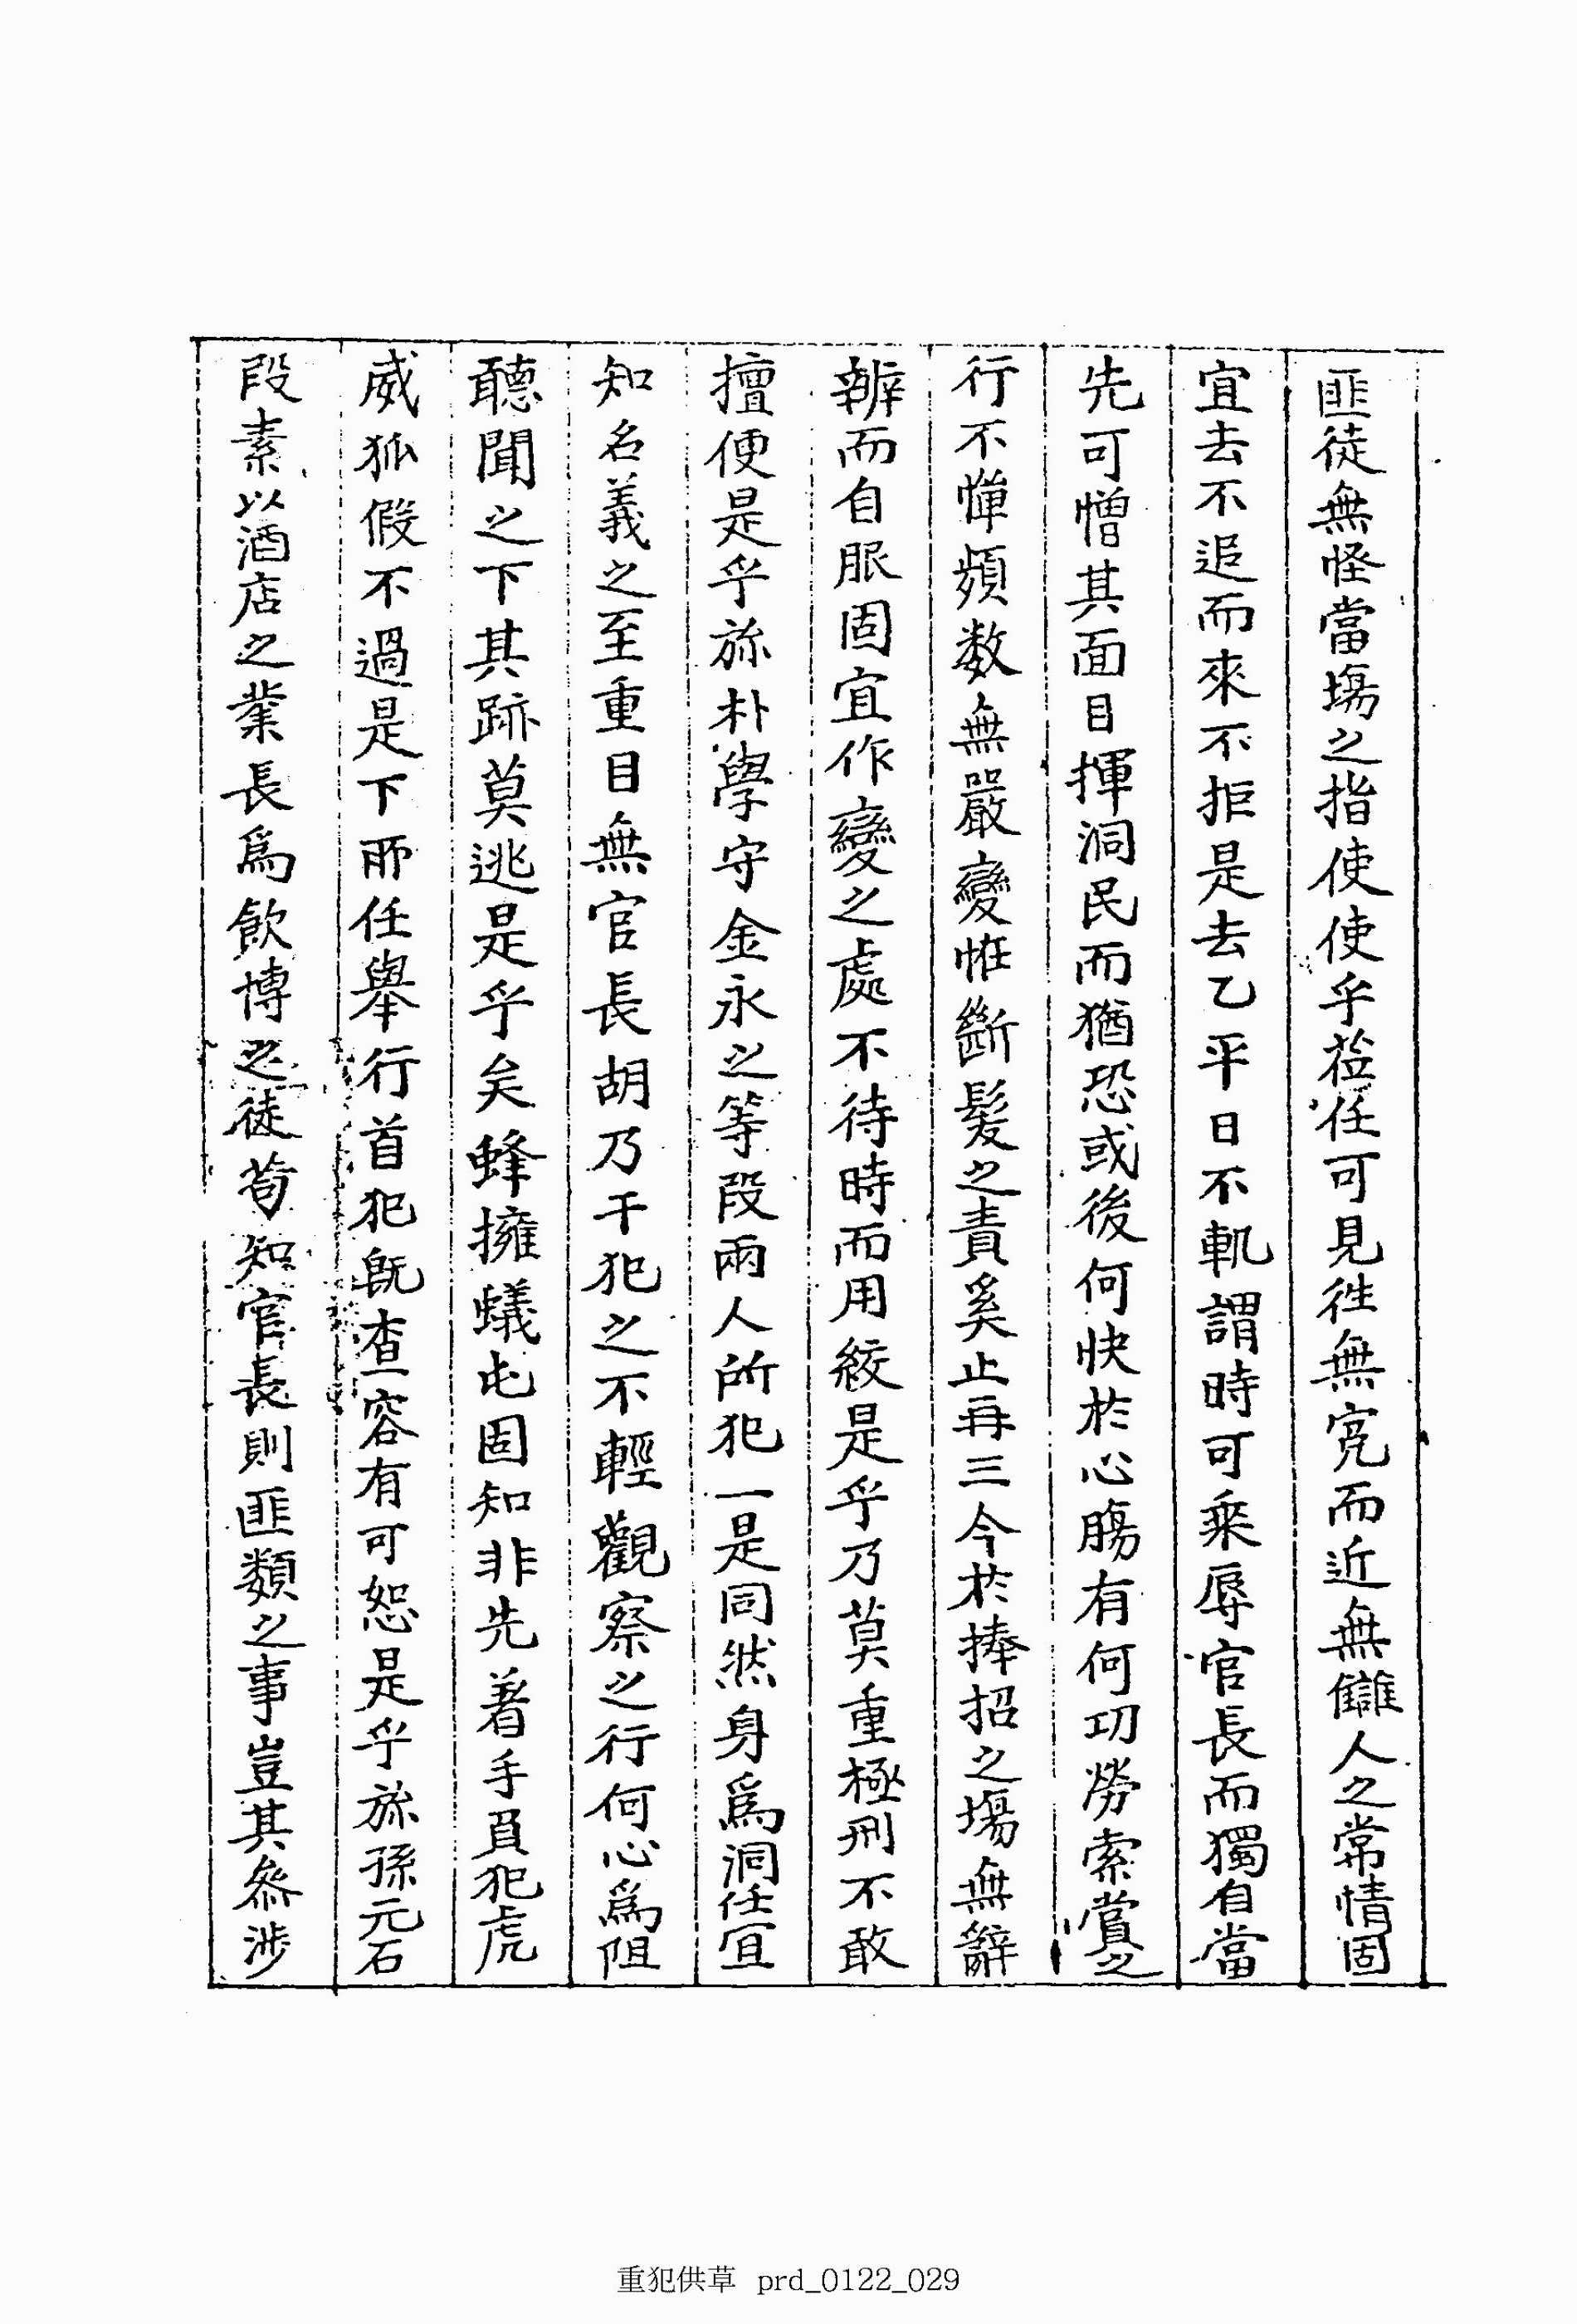 匪徒無怪當場之指使使乎莅任可見徃無寃而近無讎人之常情固
宜去不追而來不拒是去乙平日不軌謂時可乘辱官長而獨自當
先可憎其面目揮洞民而猶恐或後何快於心膓有何功勞索賞之
行不憚頻数無嚴變帷斷髮之責奚止再三今於捧招之塲無辭
辨而自服固宜作變之處不待時而用絞是乎乃莫重極刑不敢
擅便是乎旀朴學守金永之等段兩人所犯一是同然身爲洞任宜
知名義之至重目無官長胡乃干犯之不輕觀察之行何心爲阻
聽聞之下其跡莫逃是乎矣蜂擁蟻屯固知非先着手負犯虎
威狐假不過是下所任擧行首犯旣査容有可恕是乎旀孫元石
段素以酒店之業長爲飮博之徒苟知官長則匪類之事豈其叅涉
重犯供草 prd_0122_029